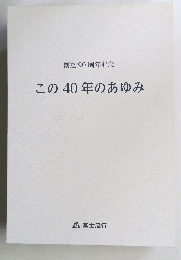 創立90周年記念
この40年のあゆみ
富士急行